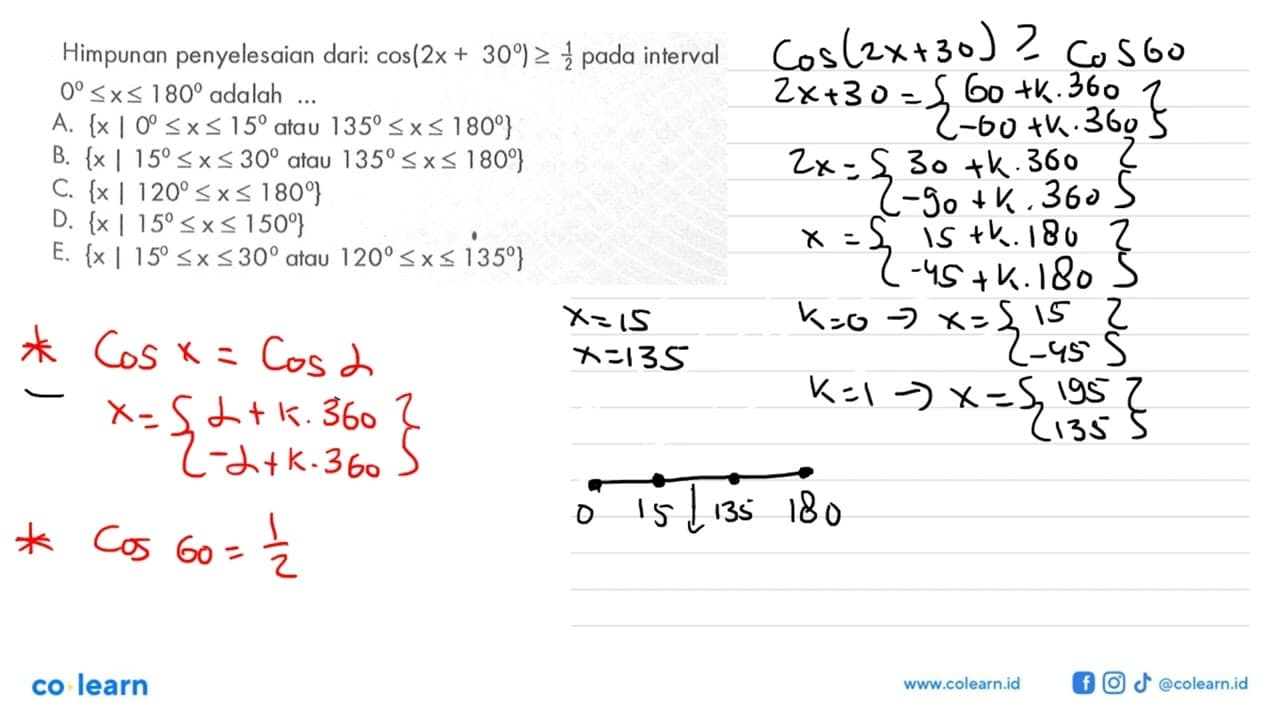 Himpunan penyelesaian dari: cos(2x + 30°) ≥ 1/2 pada interval
0° ≤ x ≤ 180° adalah ...
A. {x | 0° ≤ x ≤ 15° atau 135° ≤ x ≤ 180°}
B. {x | 15° ≤ x ≤ 30° atau 135° ≤ x ≤ 180°}
C. {x | 120° ≤ x ≤ 180°}
D. {x | 15° ≤ x ≤ 150°}
E. {x | 15° ≤ x ≤ 30° atau 120° ≤ x ≤ 135°}
Cos(2x+30) ≥ Cos 60
2x+30 = { 60 + k.360 }
{ -60 + k.360 }
2x = { 30 + k.360 }
{ -90 + k.360 }
x = { 15 + k.180 }
{ -45 + k.180 }
k=0 → x = { 15 }
{ -45 }
k=1 → x = { 195 }
{ 135 }
x=15
x=135
0 15 ↓ 135 180
* Cos x = Cos α
x = { α + k.360 }
{ -α + k.360 }
* Cos 60 = 1/2
co learn
www.colearn.id
@colearn.id